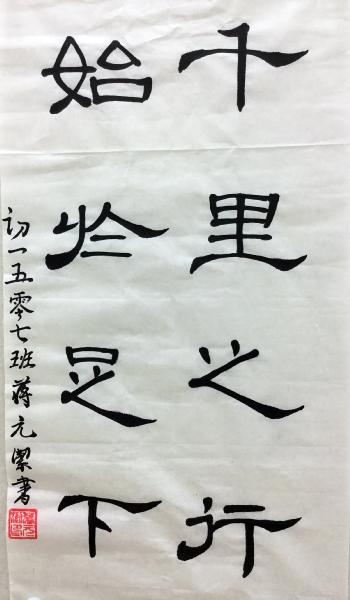 千里之行
始於足下
初一五零七班蔣元潔書